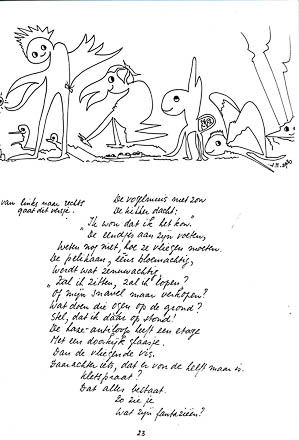 van links naar rechts
gaat dit versje.
De vogelmens met zon
De kikker dacht:
"Ik wou dat ik het kon".
De eendjes aan zijn voeten,
Weten nog niet, hoe ze vliegen moeten.
De pelikaan, eens bloemachtig,
Wordt wat zenuwachtig.
"Zal ik zitten, zal ik lopen?
Of mijn snavel maar verkopen?
Wat doen die ogen op de grond?
Stel, dat ik daar op stond!
De haze-antiloop heeft een etage
Met een doorkijk glaasje.
Dan de vliegende vis.
Daarachter iets, dat er voor de helft maar is.
Kletspraat?
Dat alles bestaat.
Zo zie je
Wat zijn fantazieën?
23